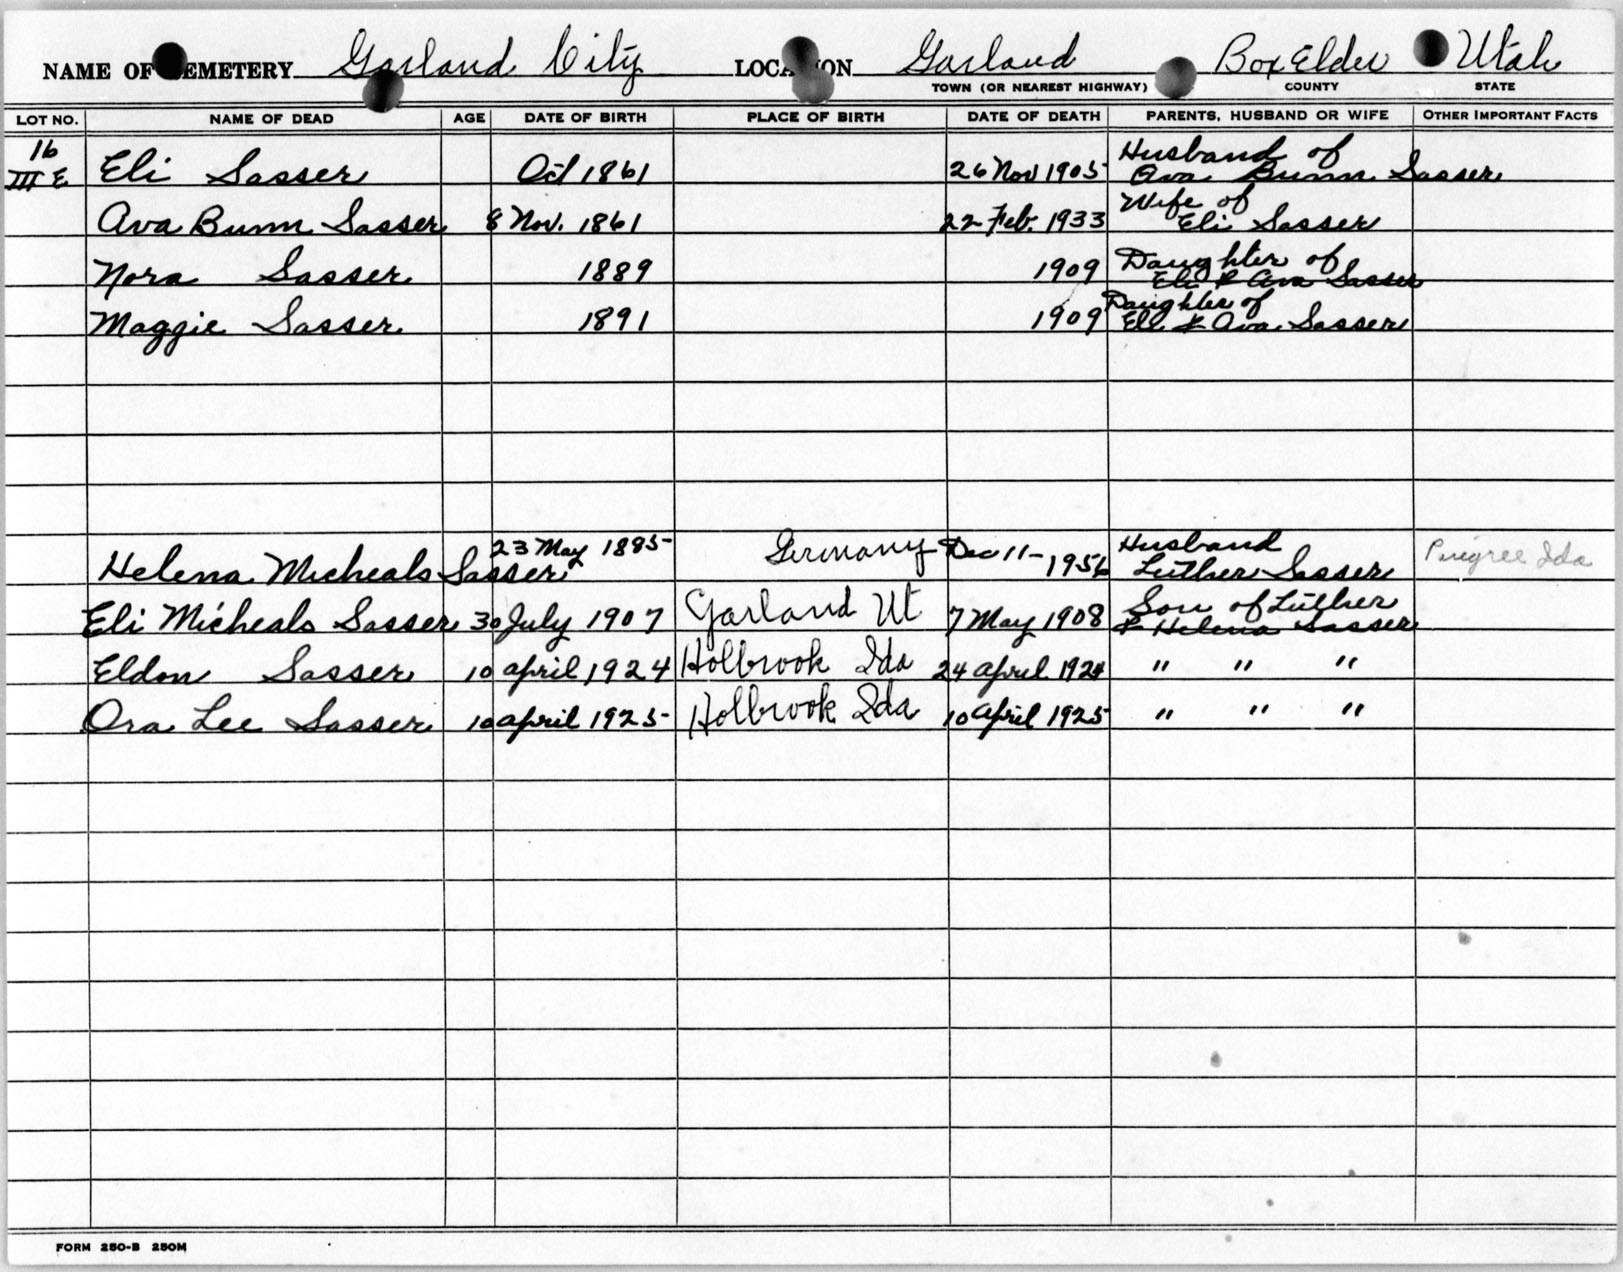 NAME OF CEMETERY Garland City LOCATION Garland Box Elder Utah
TOWN (OR NEAREST HIGHWAY) COUNTY STATE
LOT NO. NAME OF DEAD AGE DATE OF BIRTH PLACE OF BIRTH DATE OF DEATH PARENTS, HUSBAND OR WIFE OTHER IMPORTANT FACTS
16 Husband of
III E Eli Sasser Oct 1861 26 Nov 1905 Ava Bunn Sasser
Wife of
Ava Bunn Sasser 8 Nov. 1861 22 Feb. 1933 Eli Sasser
Daughter of
Nora Sasser 1889 1909 Eli & Ava Sasser
Daughter of
Maggie Sasser 1891 1909 Eli & Ava Sasser
23 May 1885 Germany Dec 11- Husband
Helena Micheals Sasser 1956 Luther Sasser Ida
Son of Luther
Eli Micheals Sasser 30 July 1907 Garland Ut 7 May 1908 & Helena Sasser
Eldon Sasser 10 april 1924 Holbrook Ida 24 april 1924 " " "
Ora Lee Sasser 10 april 1925 Holbrook Ida 10 April 1925 " " "
FORM 250-B 250M